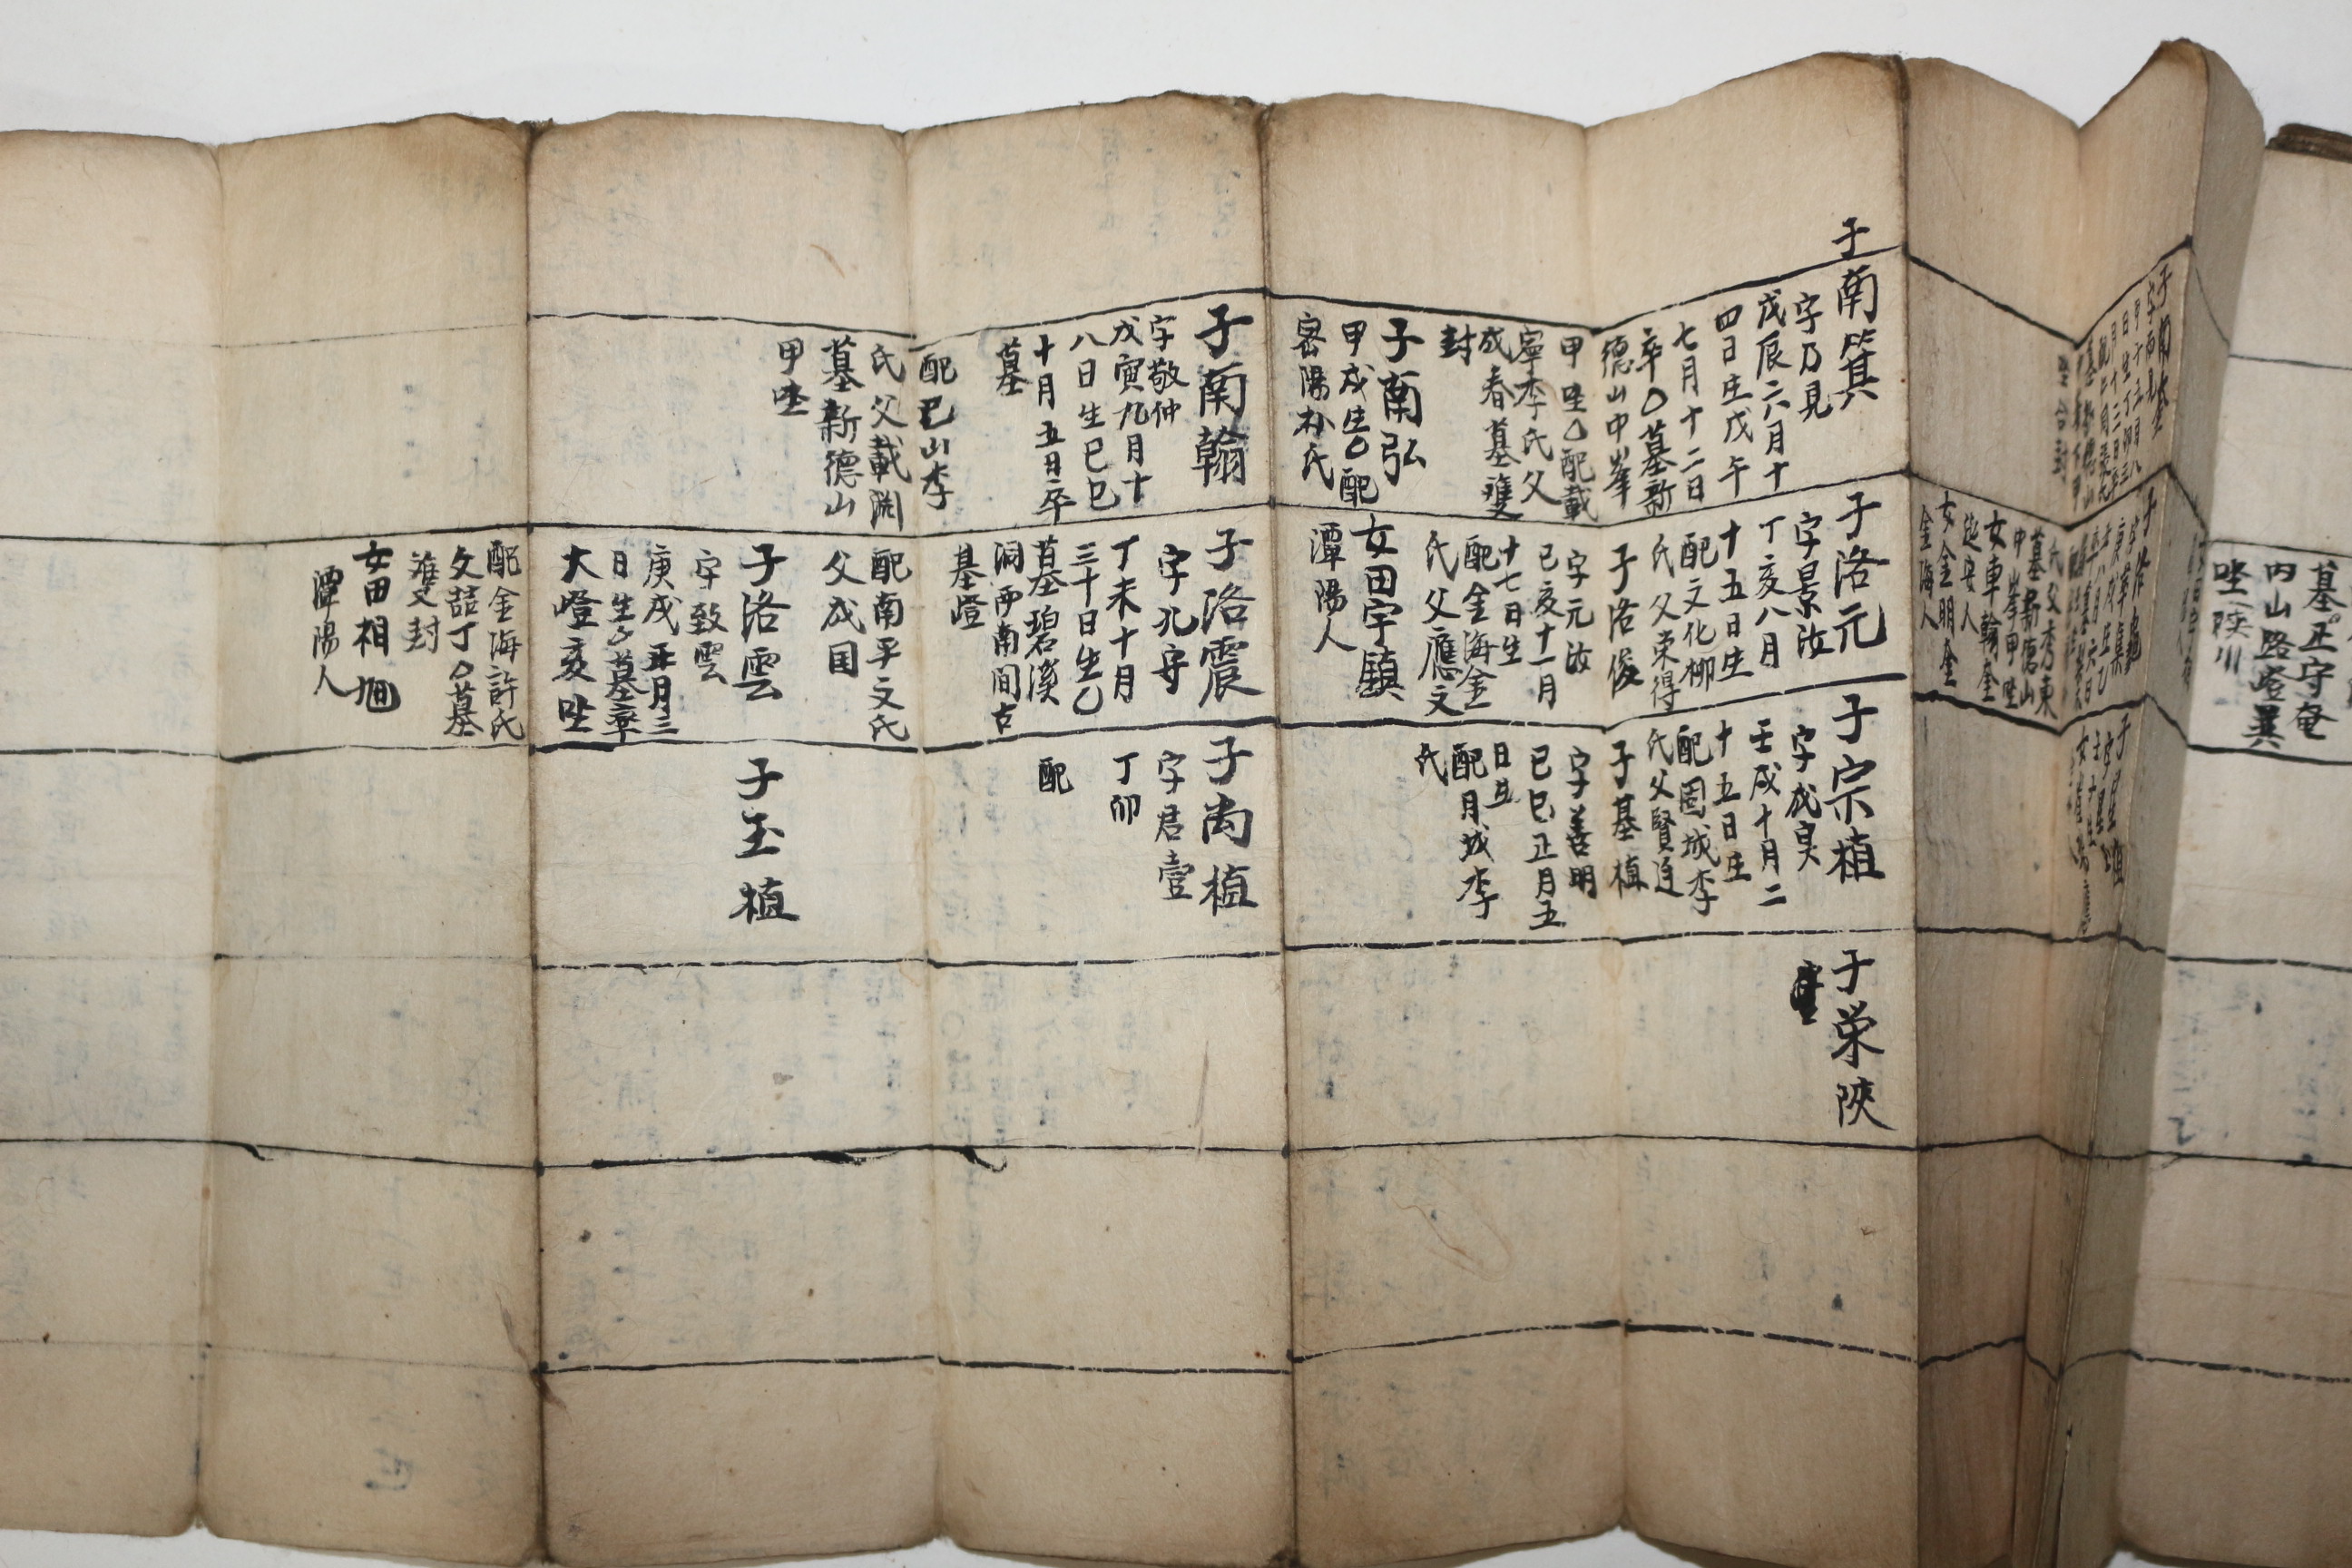 墓正守奄
內山路嶝巽
坐陜川
子南箕
字乃見
戊辰六月十
四日生戊午
七月十二日
卒〇墓新
德山中峯
甲坐〇配載
寧李氏父
成春墓雙
封
子南弘
甲戌生〇配
密陽朴氏
子南翰
字敬仲
戊寅九月十
八日生巳巳
十月五日卒
墓
配巳山李
氏父載淵
墓新德山
甲坐
女車翰奎
延安人
女金明奎
金海人
子洛元
字景汝
丁亥八月
十五日生
配文化柳
氏父榮得
子洛俊
字元汝
已亥十一月
十七日生
配金海金
氏父應文
女田宇鎮
潭陽人
子洛震
字允守
丁未十月
三十日生〇
墓碧溪
洞西南間古
基嶝
配南平文氏
父成国
子洛雲
字致雲
庚戌正月三
日生〇墓章
大嶝亥坐
配金海許氏
父喆丁〇墓
雙封
女田相旭
潭陽人
子宗植
字成昊
壬戌十月二
十五日生
配固城李
氏父賢逹
子基植
字善明
已巳正月五
日生
配月城李
氏
子尚植
字君壹
丁卯
配
子玉植
子栄陝